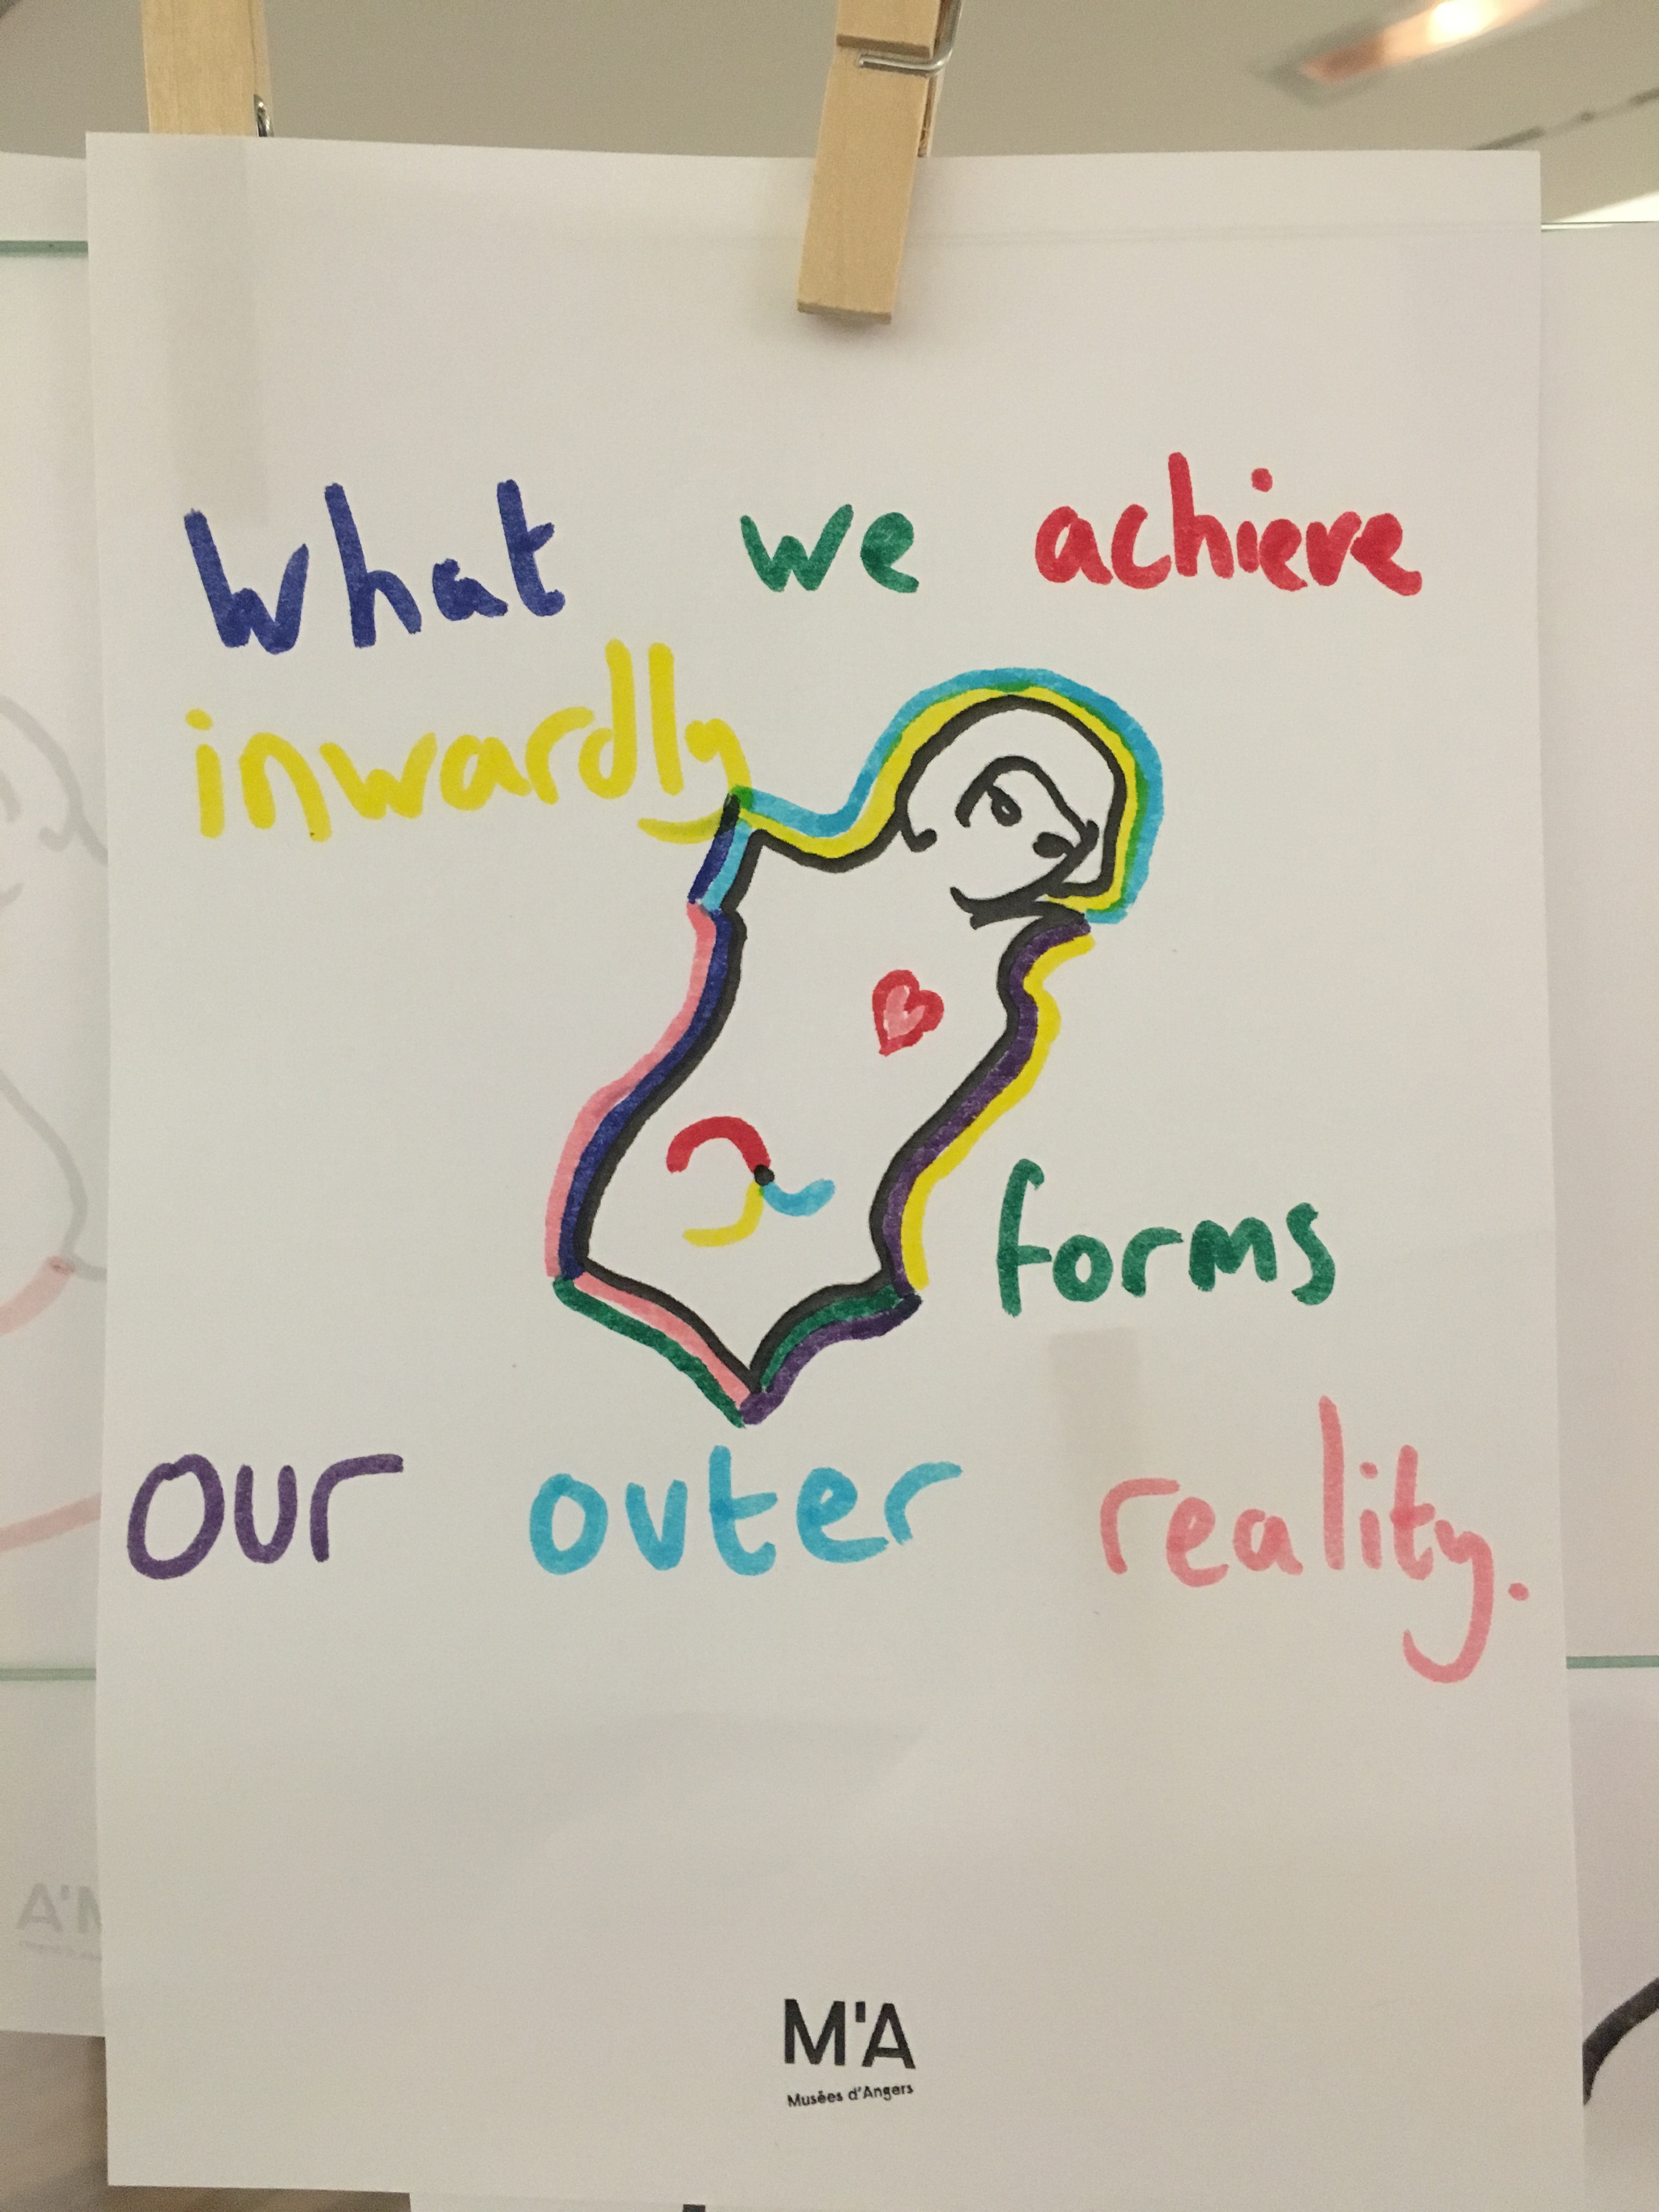 What we achieve
inwardly
forms
our outer reality.
M'A
Musées d'Angers